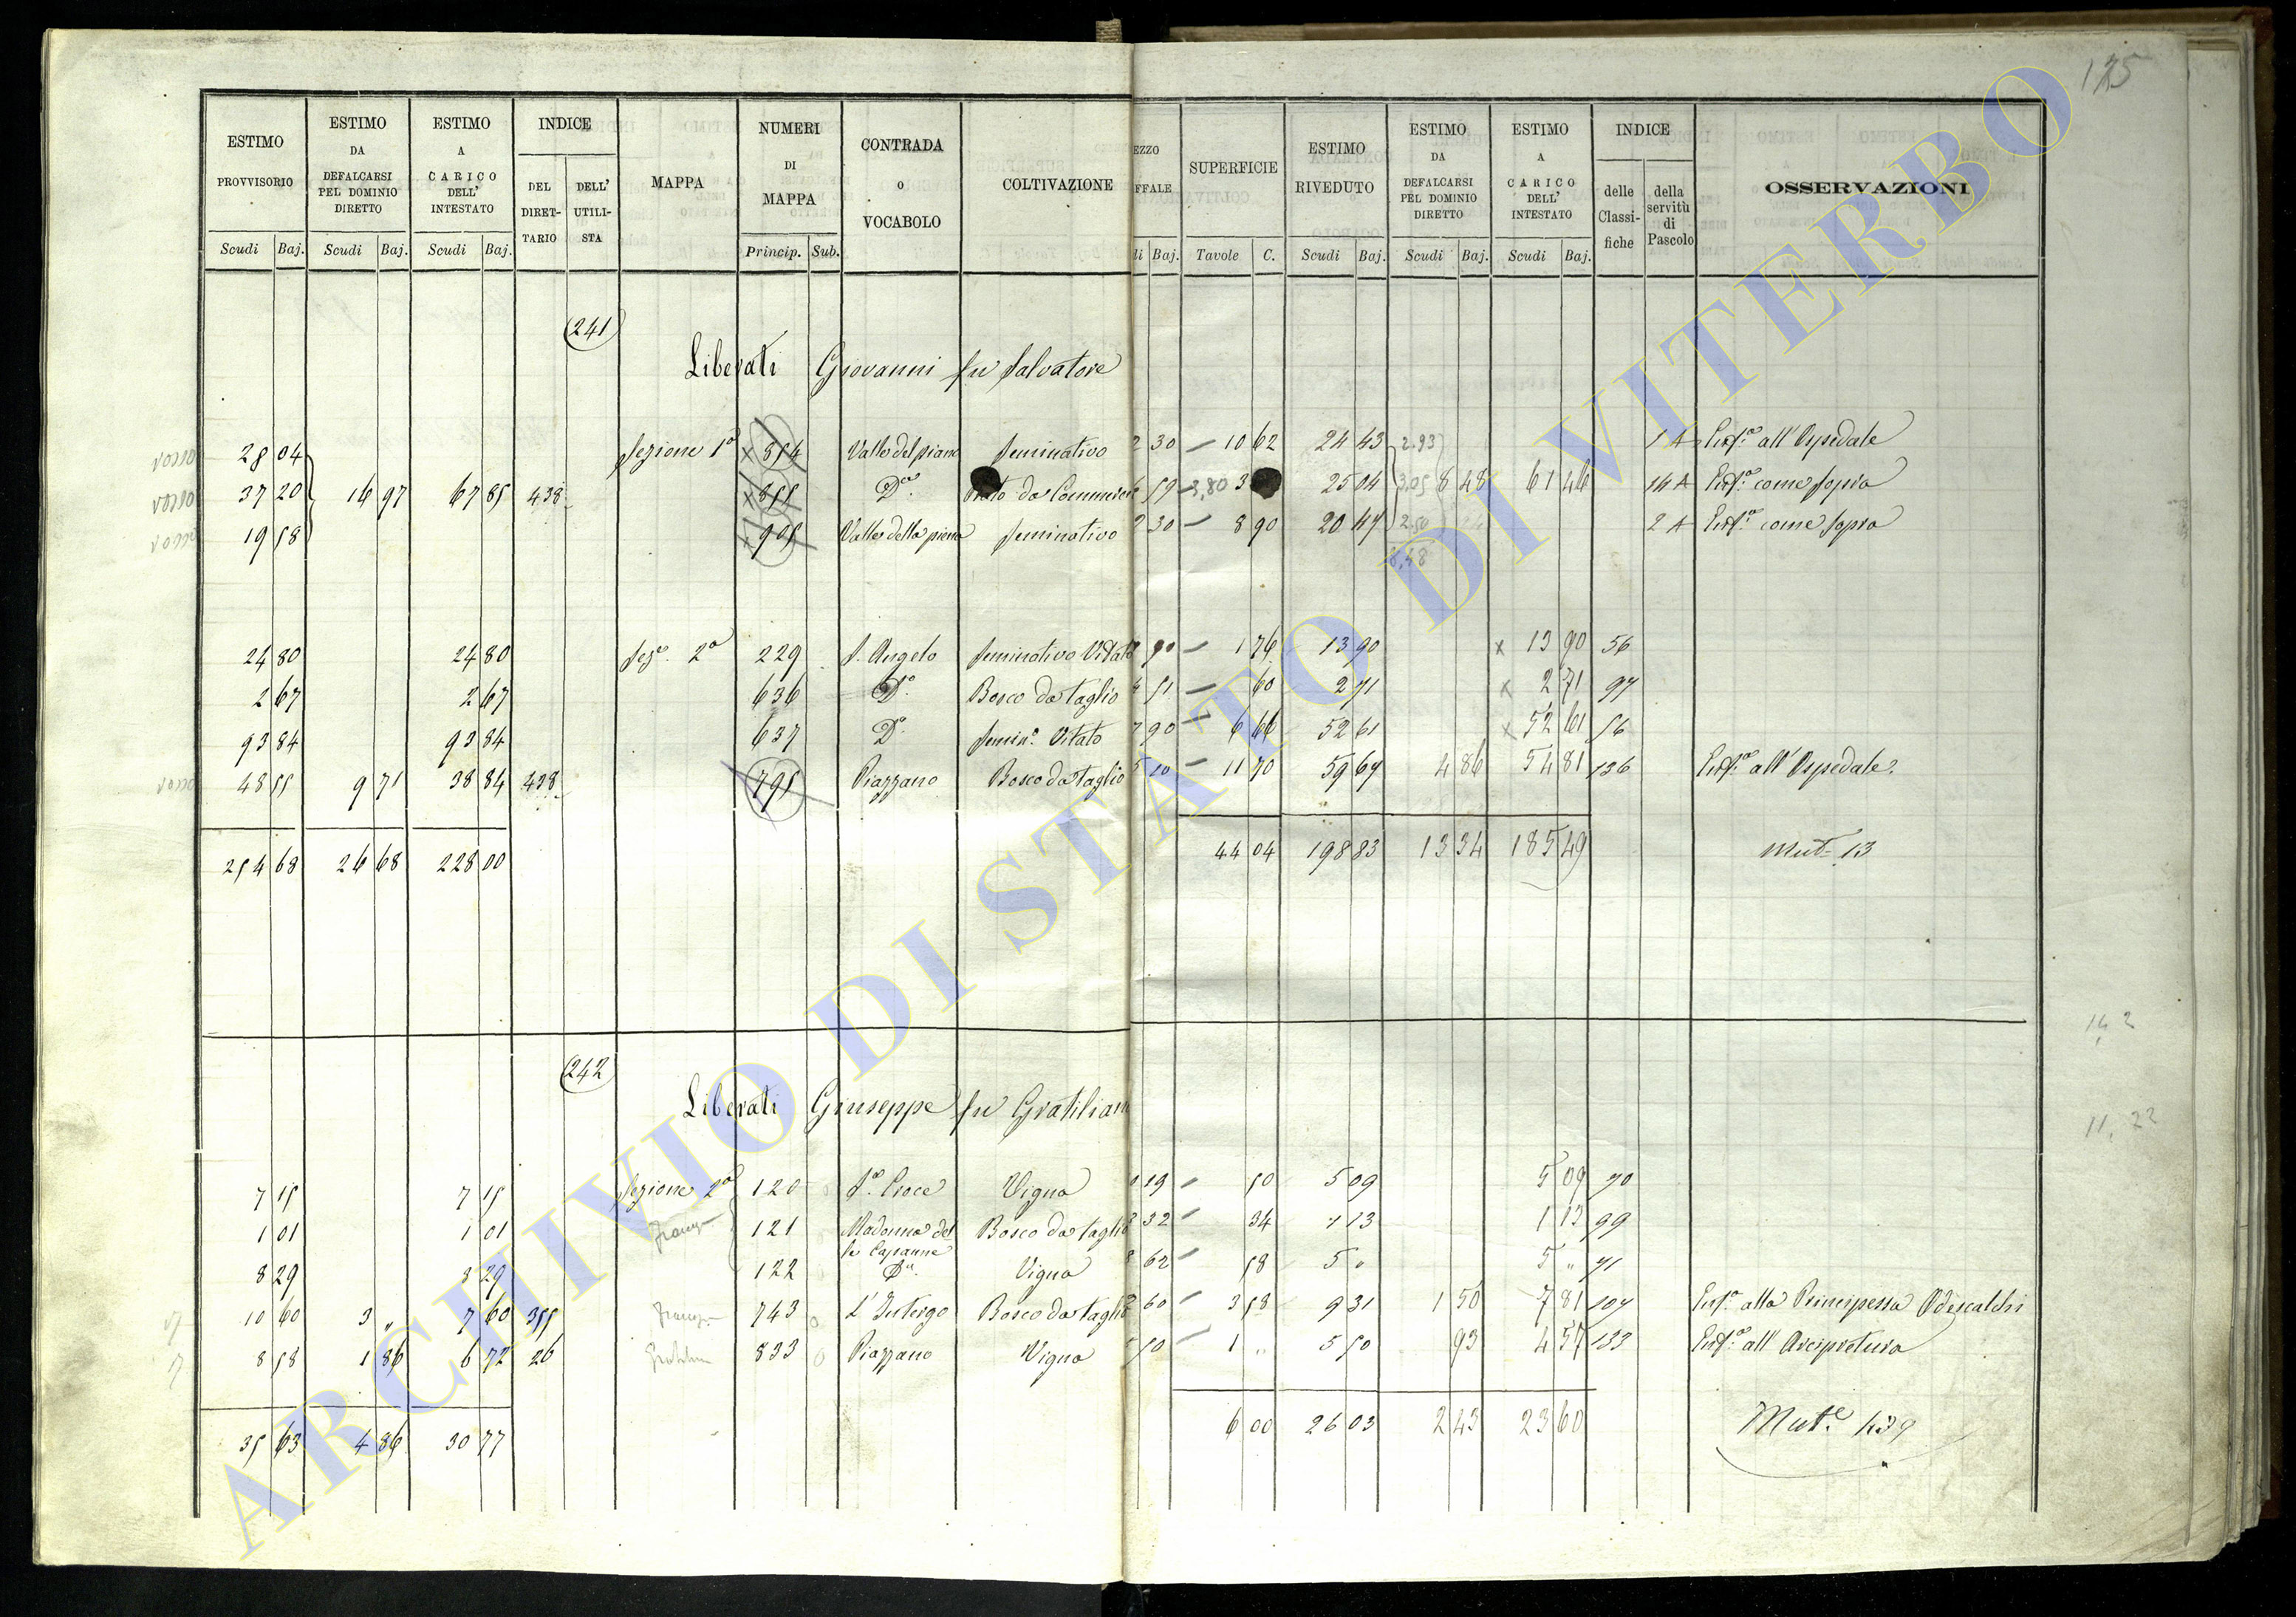 175
ESTIMO PROVVISORIO Scudi Baj. ESTIMO DA DEFALCARSI PEL DOMINIO DIRETTO Scudi Baj. ESTIMO A CARICO DELL' INTESTATO Scudi Baj. INDICE DEL DIRETTARIO DELL' UTILISTA MAPPA NUMERI DI MAPPA Princip. Sub. CONTRADA O VOCABOLO COLTIVAZIONE EZZO FFALE di Baj. SUPERFICIE Tavole C. ESTIMO RIVEDUTO Scudi Baj. ESTIMO DA DEFALCARSI PEL DOMINIO DIRETTO Scudi Baj. ESTIMO A CARICO DELL' INTESTATO Scudi Baj. INDICE delle Classifiche della servitù di Pascolo OSSERVAZIONI
241
Liberati Giovanni fu Salvatore
28 04 Sezione 1ª 854 Valle del piano Seminativo 2 30 10 62 24 43 2.93 1 A Enf.ª all'Ospedale
37 20 16 97 67 85 438 855 D.º Prato da 59 3,80 3 25 04 3,05 8 48 61 46 14 A Enf.ª come sopra
19 58 905 Valle della piena Seminativo 2 30 8 90 20 47 2.50 2 A Enf.ª come sopra
8,48
24 80 24 80 Sez.e 2ª 229 S. Angelo Seminativo Vitato 7 90 1 76 13 90 13 90 56
2 67 2 67 636 D.º Bosco da taglio 4 51 60 2 71 2 71 97
93 84 93 84 637 D.º Semin.º Vitato 7 90 6 66 52 61 52 61 56
48 55 9 71 38 84 438 795 Piazzano Bosco da taglio 5 10 11 70 59 67 4 86 54 81 136 Enf.ª all'Ospedale.
254 68 26 68 228 00 44 04 198 83 13 34 185 49 Mut. 13
242
Liberati Giuseppe fu Gratiliano
7 15 7 15 Sezione 2ª 120 S.ª Croce Vigna 19 50 5 09 5 09 70
1 01 1 01 121 Madonna del Bosco da taglio 3 32 34 1 13 1 13 99
le Capanne
8 29 8 29 122 D.ª Vigna 8 62 58 5 " 5 " 71
10 60 3 " 7 60 355 743 L'Intergo Bosco da taglio 2 60 3 58 9 31 1 50 7 81 107 Enf.ª alla Principessa Odescalchi
8 58 1 86 6 72 26 833 Piazzano Vigna 5 50 1 " 5 50 93 4 57 133 Enf.ª all'Arcipretura
35 63 4 86 30 77 6 00 26 03 2 43 23 60 Mut.e 139
14,2
11,22
ARCHIVIO DI STATO DI VITERBO